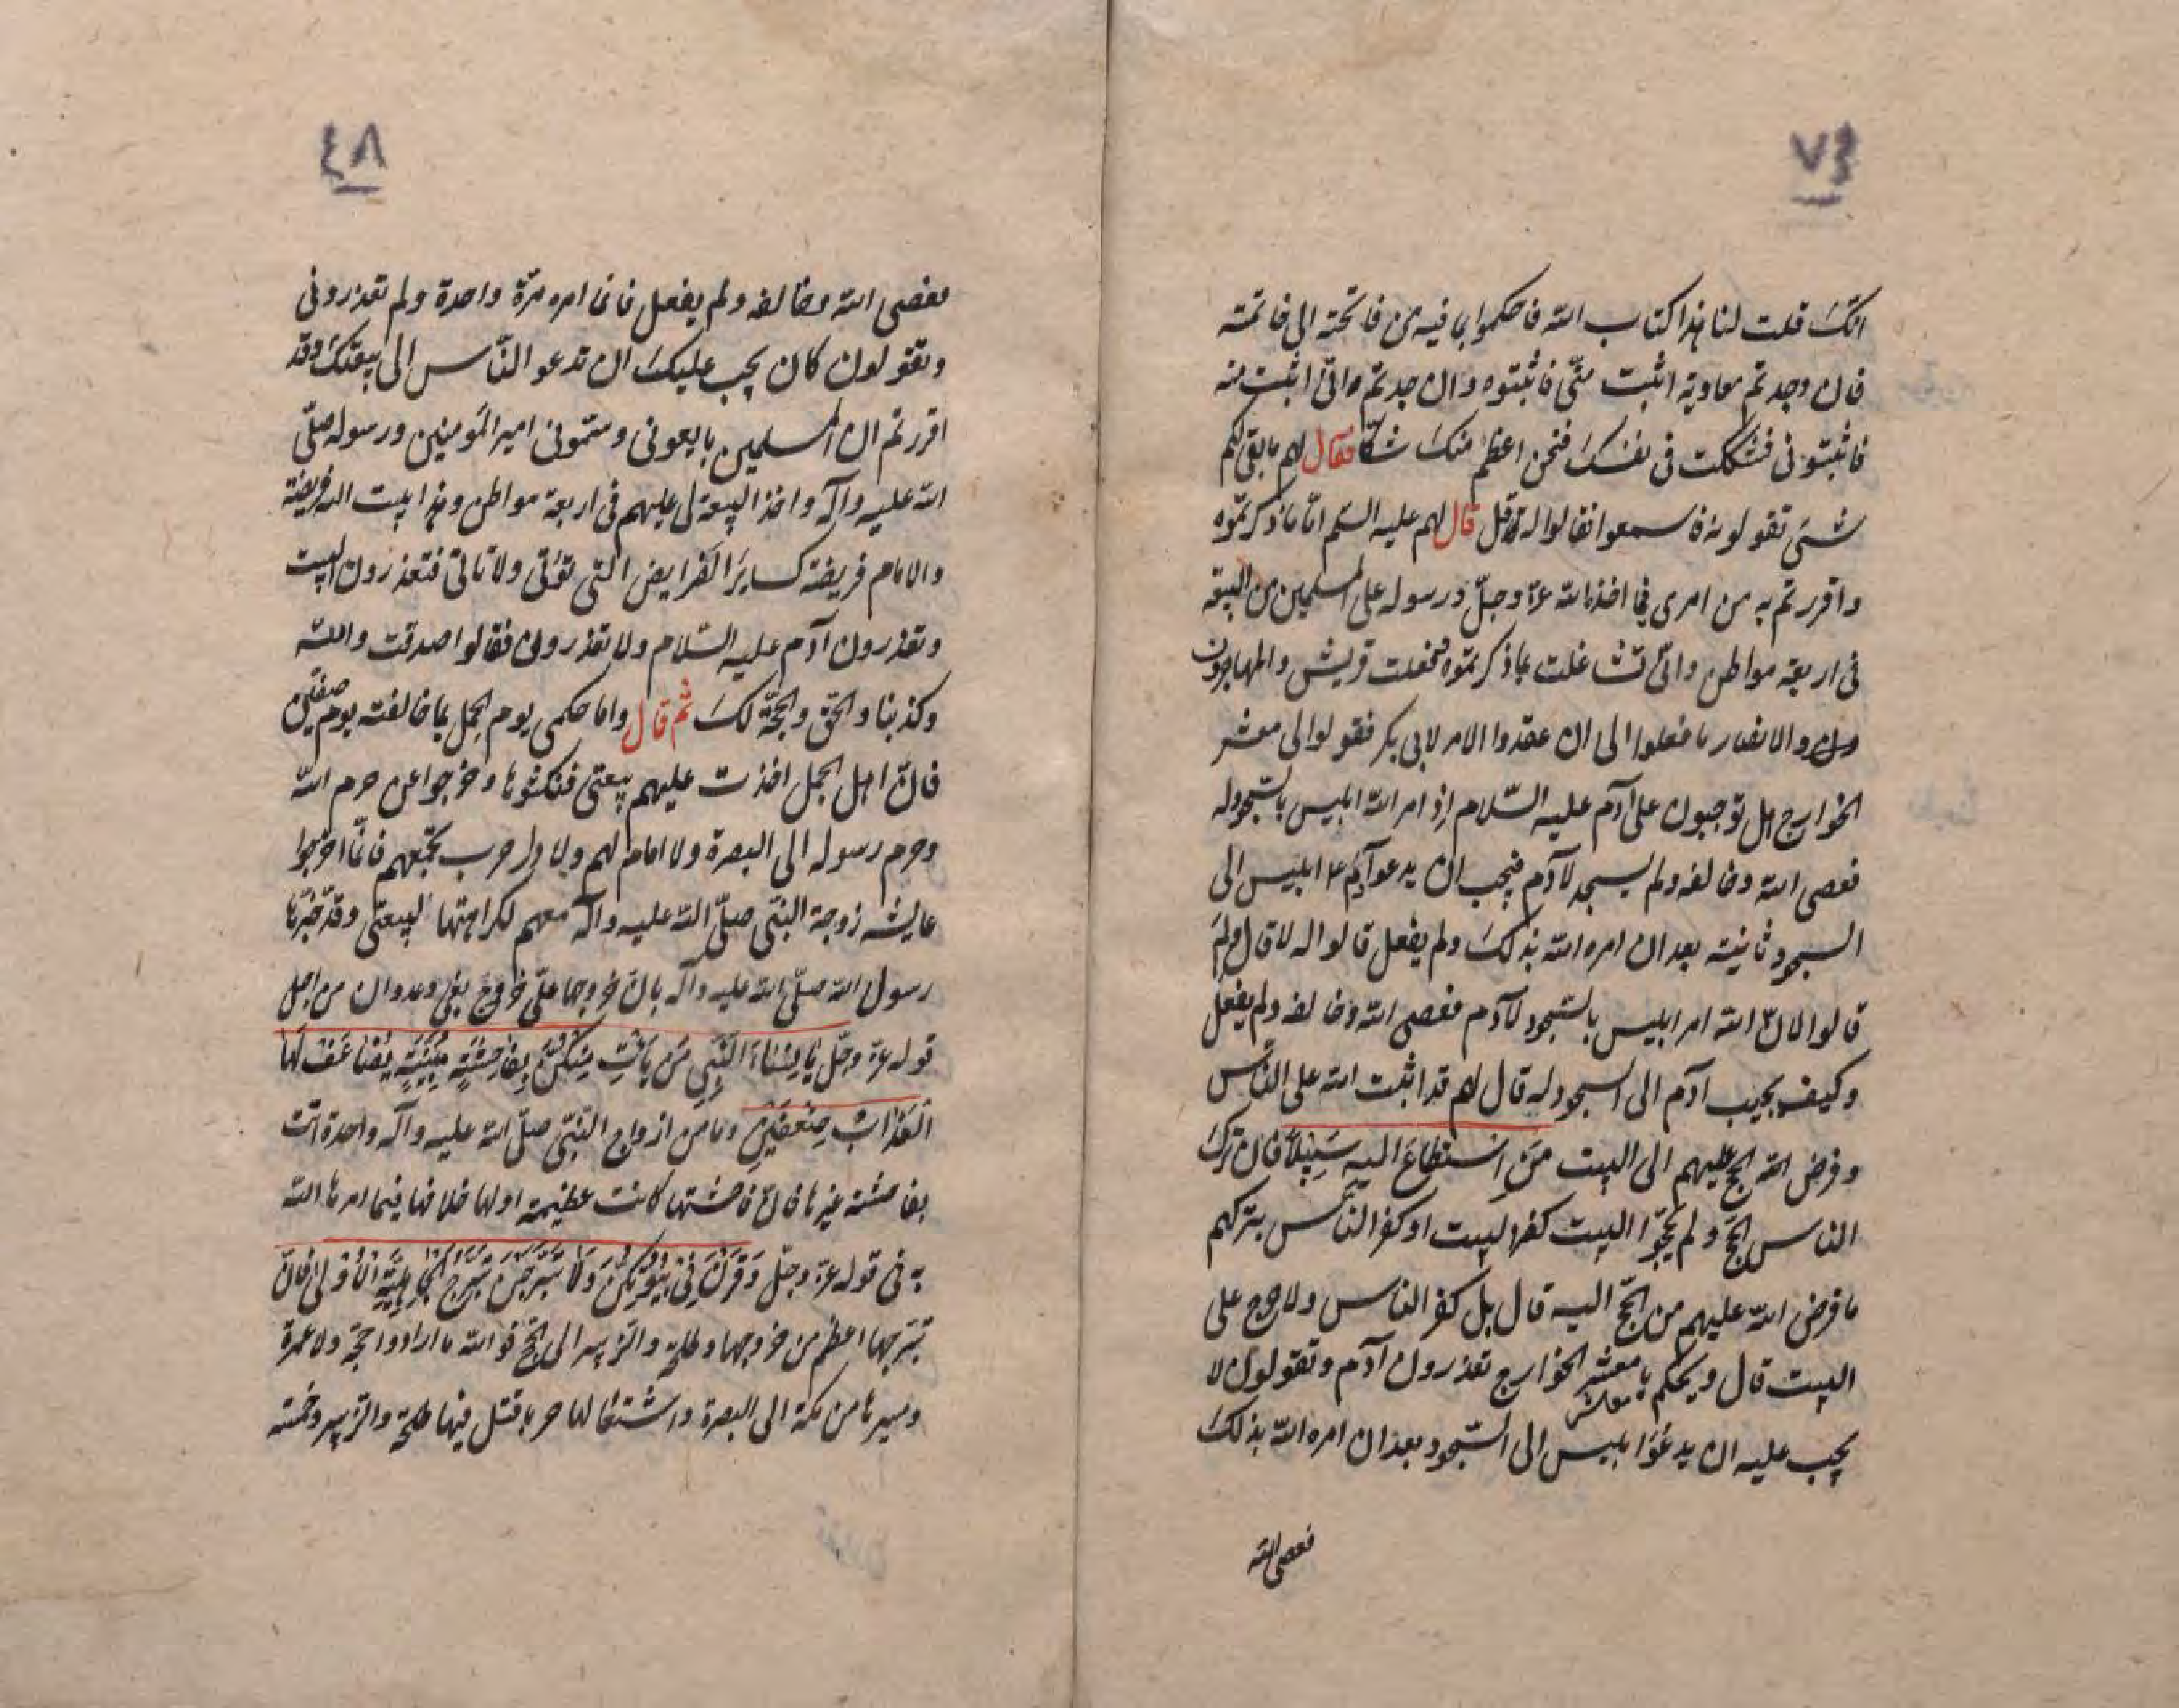 ٤٧
انك قلت لنا هذا كتاب الله فاحكموا بما فيه من فاتحته الى خاتمته
فان وجدتم معاوية اثبت منّي فاثبتوه وان وجدتموني اثبت منه
فاثبتوني فشككت في نفسك فنحن اعظم منك شكّا فقال لهم ما بقى لكم
شىء تقولونه فاسمعوا فقالوا له قل قال لهم عليه السلم امّا ما ذكرتموه
واقررتم به من امرى فيما اخذه الله عزّ وجلّ ورسوله على المسلمين من البيعة
فى اربعة مواطن وانّى تشاغلت بما ذكرتموه ففعلت قريش والمهاجرون
والانصار ما فعلوا الى ان عقدوا الامر لابى بكر فقولوا لى معشر
الخوارج هل توجبون على آدم عليه السّلام اذ امر الله ابليس بالسّجود له
فعصى الله وخالفه ولم يسجد لآدم فيجب ان يدعو آدم ابليس الى
السجود ثانية بعد ان امره الله بذلك ولم يفعل قالوا له لا قال ولم
قالوا لانّ الله امر ابليس بالسّجود لآدم فعصى الله وخالفه ولم يفعل
وكيف يجيب آدم الى السجود له قال لهم قد اثبت الله على النّاس
وفرض الله الحج عليهم الى البيت مَنِ اسْتَطَاعَ اليه سَبِيلاً فان ترك
الناس الحجّ ولم يحجّوا البيت كفر البيت او كفر النّاس بتركهم
ما فرض الله عليهم من الحجّ اليه قال بل كفر الناس ولا حرج على
البيت قال ويحكم يا معشر الخوارج تعذرون آدم وتقولون لا
معاشر
يجب عليه ان يدعُوَا بليس الى السّجود بعد ان امره الله بذلك
فعصى الله
٤٨
فعصى الله وخالفه ولم يفعل فانما امره مرّة واحدة ولم تعذرونى
وتقولون كان يجب عليك ان تدعو النّاس الى بيعتك وقد
اقررتم ان المسلمين بايعونى وسمّونى امير المؤمنين ورسوله صلّى
الله عليه وآله واخذ البيعة لى عليهم فى اربعة مواطن وهذا بيت الله فريضة
والامام فريضة كساير الفرايض التى تؤتى ولا تاتى فتعذرون البيت
وتعذرون آدم عليه السّلام ولا تعذرونى فقالوا صدقت والله
وكذبنا والحقّ والحجّة لك ثم قال واما حكمى يوم الجمل بما خالفته يوم صفّين
فانّ اهل الجمل اخذت عليهم بيعتى فنكثوها وخرجوا عن حرم الله
وحرم رسوله الى البصرة ولا امام لهم ولا دار حرب تجمعهم فانّما اخرجوا
عايشه زوجة النبّى صلّى الله عليه وآله معهم لكراهتها لبيعتى وقد خبّرها
رسول الله صلّى الله عليه وآله بان خروجها علىّ خروج بغى وعدوان من اجل
قوله عزّ وجلّ يَا نِسَاءَ النَّبِى مَن يَأْتِ مِنكُنَّ بِفَاحِشَةٍ مُبَيِّنَةٍ يُضَاعَفْ لَهَا
الْعَذَابُ ضِعْفَيْنِ وما من ازواج النّبّى صلّى الله عليه وآله واحدة اتت
بفاحشة غيرها فانّ فاحشتها كانت عظيمة اولها خلافها فيما امرها الله
به فى قوله عزّ وجلّ وَقَرْنَ فِى بُيُوتِكُنَّ وَلَا تَبَرَّجْنَ تَبَرُّجَ الجَاهِلِيَّةِ الْأُولَى فانّ
تبرّجها اعظم من خروجها وطلحة والزّبير الى الحجّ فو الله ما ارادوا حجّة ولا عمرة
ومسيرها من مكة الى البصرة واشتعالها حربا قتل فيها طلحة والزّبير وخمسة